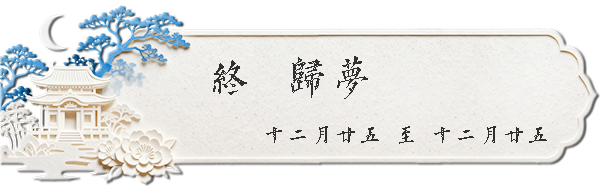 終 歸夢
十二月廿五 至 十二月廿五